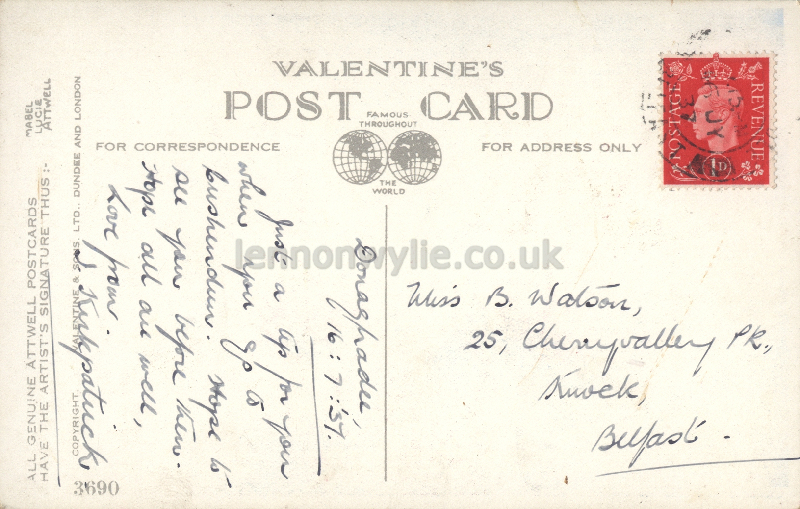 VALENTINE'S
POST CARD
FAMOUS
THROUGHOUT
THE
WORLD
FOR CORRESPONDENCE
FOR ADDRESS ONLY
ALL GENUINE ATTWELL POSTCARDS
HAVE THE ARTIST'S SIGNATURE THUS :-
MABEL
LUCIE
ATTWELL
COPYRIGHT. VALENTINE & SONS. LTD., DUNDEE AND LONDON
3690
Donaghadee,
16:7:'37.
Just a tip for you
when you go to
Cushendun. Hope to
see you before then.
Hope all are well,
Love from.
Kirkpatrick
Miss B. Watson,
25, Cherryvalley PK.,
Knock,
Belfast.
POSTAGE
REVENUE
1D
JY
37
lennonwylie.co.uk